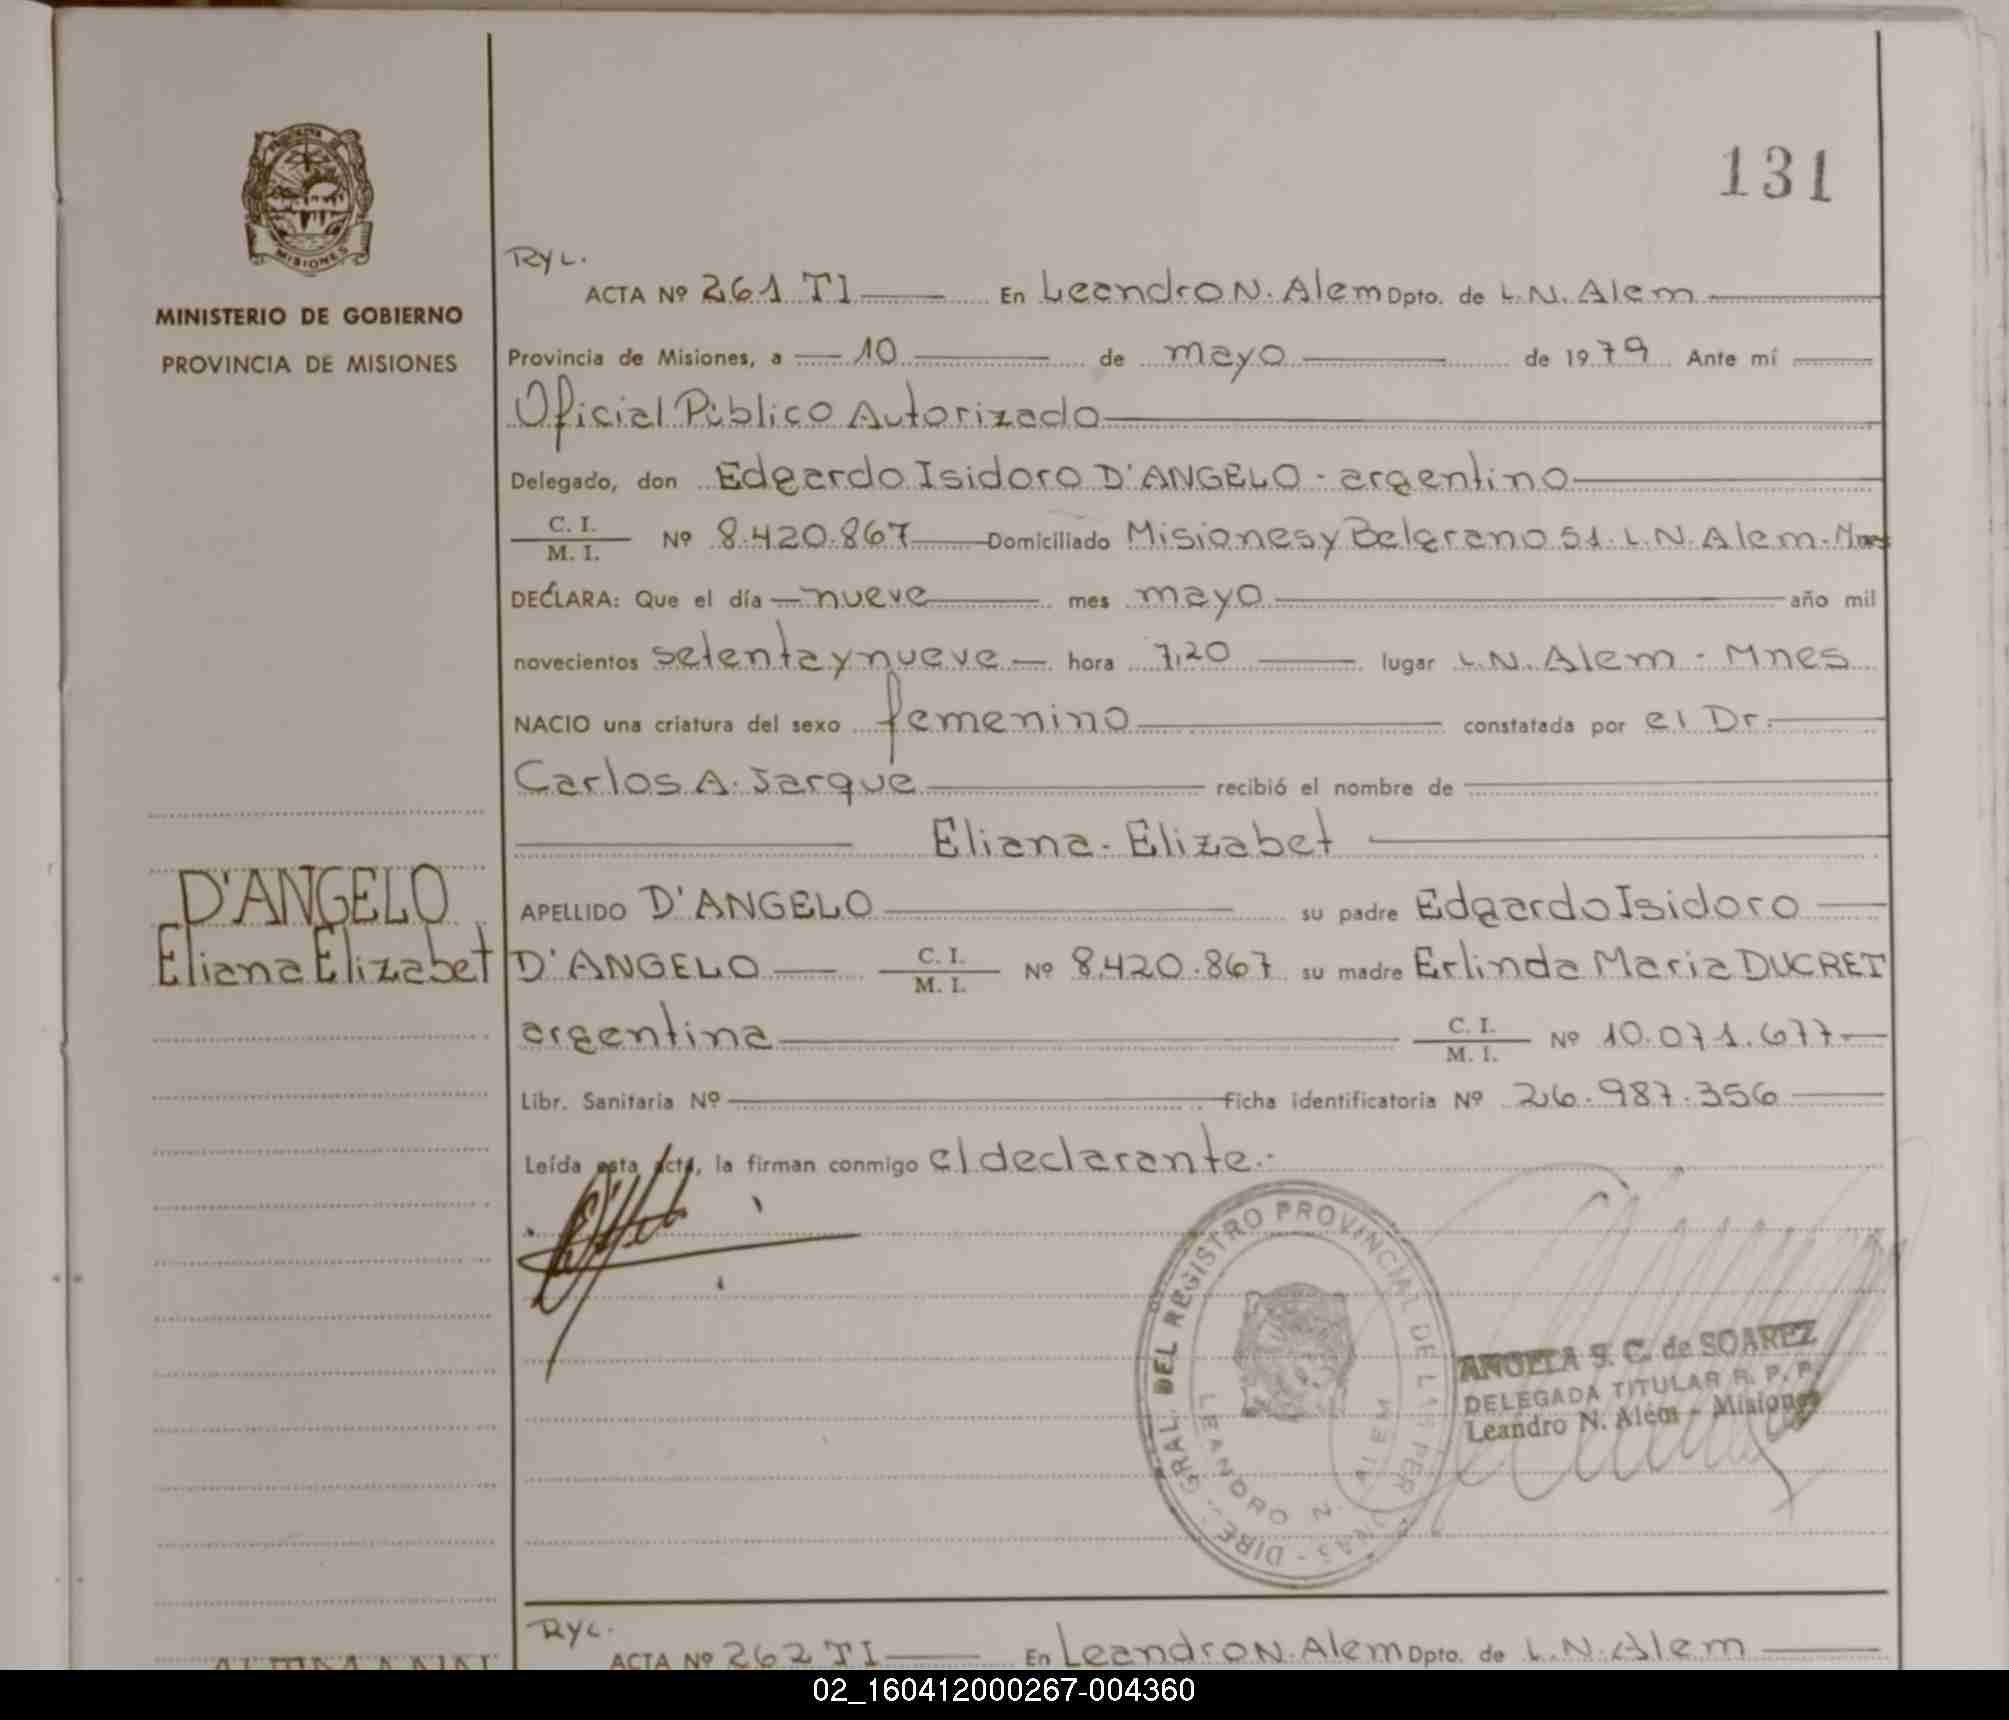 131
MISIONES
MINISTERIO DE GOBIERNO
PROVINCIA DE MISIONES
Ryc.
ACTA Nº 261 TI En Leandro N. Alem Dpto. de L.N. Alem
Provincia de Misiones, a 10 de mayo de 1979 Ante mí
Oficial Público Autorizado
Delegado, don Edgardo Isidoro D'ANGELO - argentino
C. I.
M. I. Nº 8.420.867 Domiciliado Misiones y Belgrano 51. L.N. Alem - Mnes
DECLARA: Que el día nueve mes mayo año mil
novecientos setenta y nueve hora 7,20 lugar L.N. Alem - Mnes
NACIO una criatura del sexo femenino constatada por el Dr.
Carlos A. Jarque recibió el nombre de
Eliana - Elizabet
D'ANGELO
Eliana Elizabet
APELLIDO D'ANGELO su padre Edgardo Isidoro
D'ANGELO C. I. M. I. Nº 8.420.867 su madre Erlinda Maria DUCRET
argentina C. I. M. I. Nº 10.071.677
Libr. Sanitaria Nº Ficha identificatoria Nº 26.987.356
Leída esta acta, la firman conmigo el declarante.-
GRAL DEL REGISTRO PROVINCIAL DE LAS PERSONAS - DIRE.
LEANDRO N. ALEM
ANGELA S. C. de SOAREZ
DELEGADA TITULAR R. P. P.
Leandro N. Além - Misiones
Ryc.
ACTA Nº 262 TI En Leandro N. Alem Dpto. de L.N. Alem
02_160412000267-004360